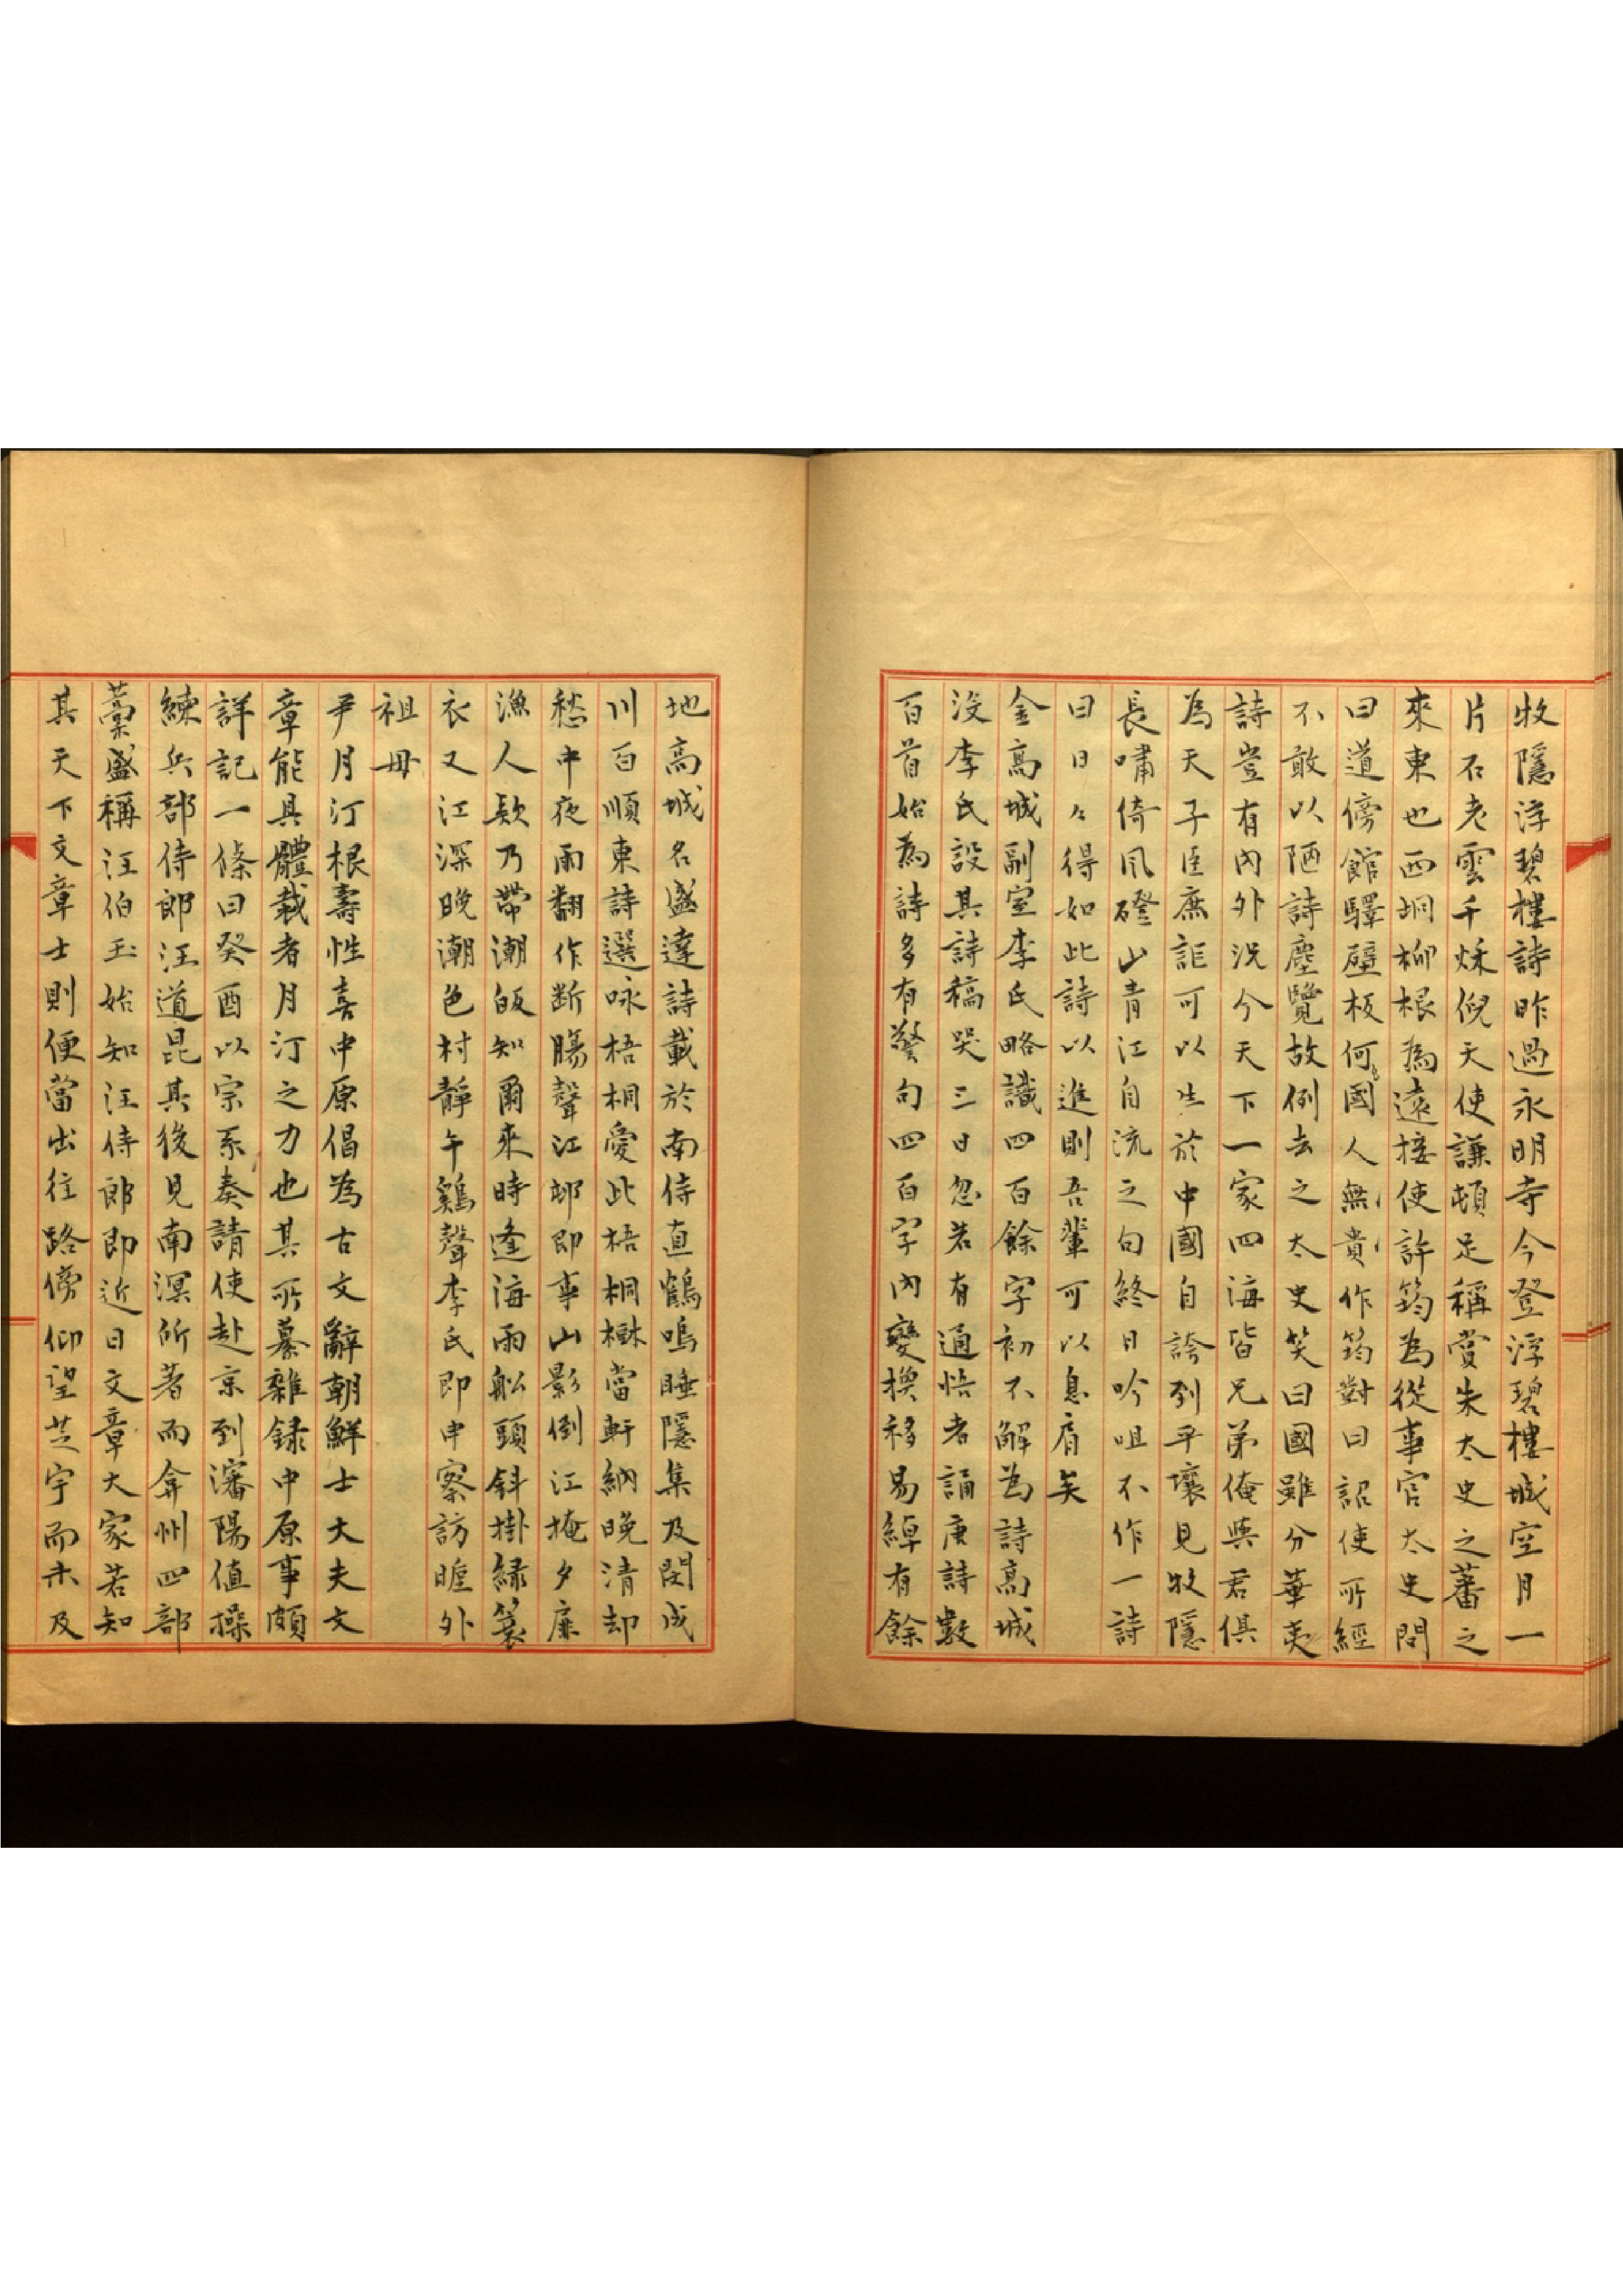 牧隱浮碧樓詩昨過永明寺今登浮碧樓城空月一
片石老雲千秌倪天使謙頓足稱賞朱太史之蕃之
來東也西坰柳根為遠接使許筠為從事官太史問
曰道傍館驛壁板何國人無貴作筠對曰詔使所經
不敢以陋詩塵覽故例去之太史笑曰國雖分華夷
詩豈有內外況今天下一家四海皆兄弟俺與君俱
為天子臣庶詎可以生於中國自誇列乎壤見牧隱
長嘯倚風磴山青江自流之句終日吟咀不作一詩
曰日々得如此詩以進則吾輩可以息肩矣
金高城副室李氏略識四百餘字初不解為詩高城
沒李氏設其詩稿哭三日忽若有通悟者誦唐詩數
百首始為詩多有警句四百字內變換移易綽有餘
地高城名盛達詩載於南侍直鶴鳴睡隱集及閔成
川百順東詩選咏梧桐愛此梧桐樹當軒納晚清却
愁中夜雨翻作斷腸聲江邨即事山影倒江掩夕扉
漁人欵乃帶潮皈知爾來時逢海雨舩頭斜掛緑簑
衣又江深晚潮色村靜午鷄聲李氏即申察訪暒外
祖母
尹月汀根壽性喜中原倡為古文辭朝鮮士大夫文
章能具體裁者月汀之力也其所纂雜録中原事頗
詳記一條曰癸酉以宗系奏請使赴京到瀋陽值操
練兵部侍郎汪道昆其後見南溟所著而弇州四部
藁盛稱汪伯玉始知汪侍郎即近日文章大家若知
其天下文章士則便當出往路傍仰望芝宇而未及